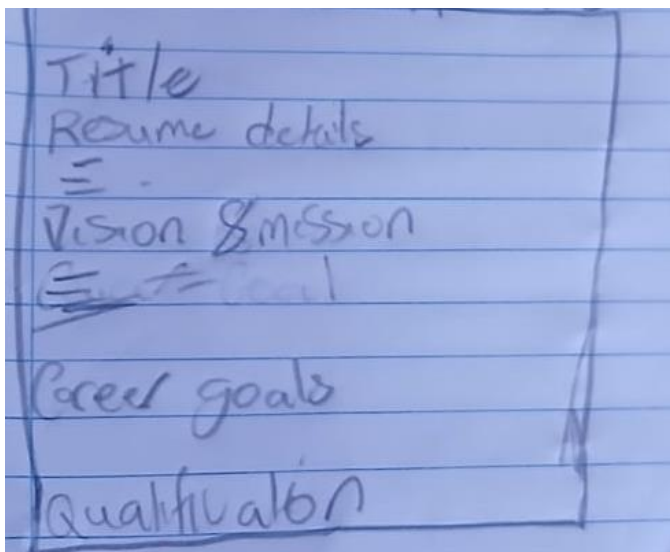 Title
Resume details
Vision & mission
Goal
Career goals
Qualification